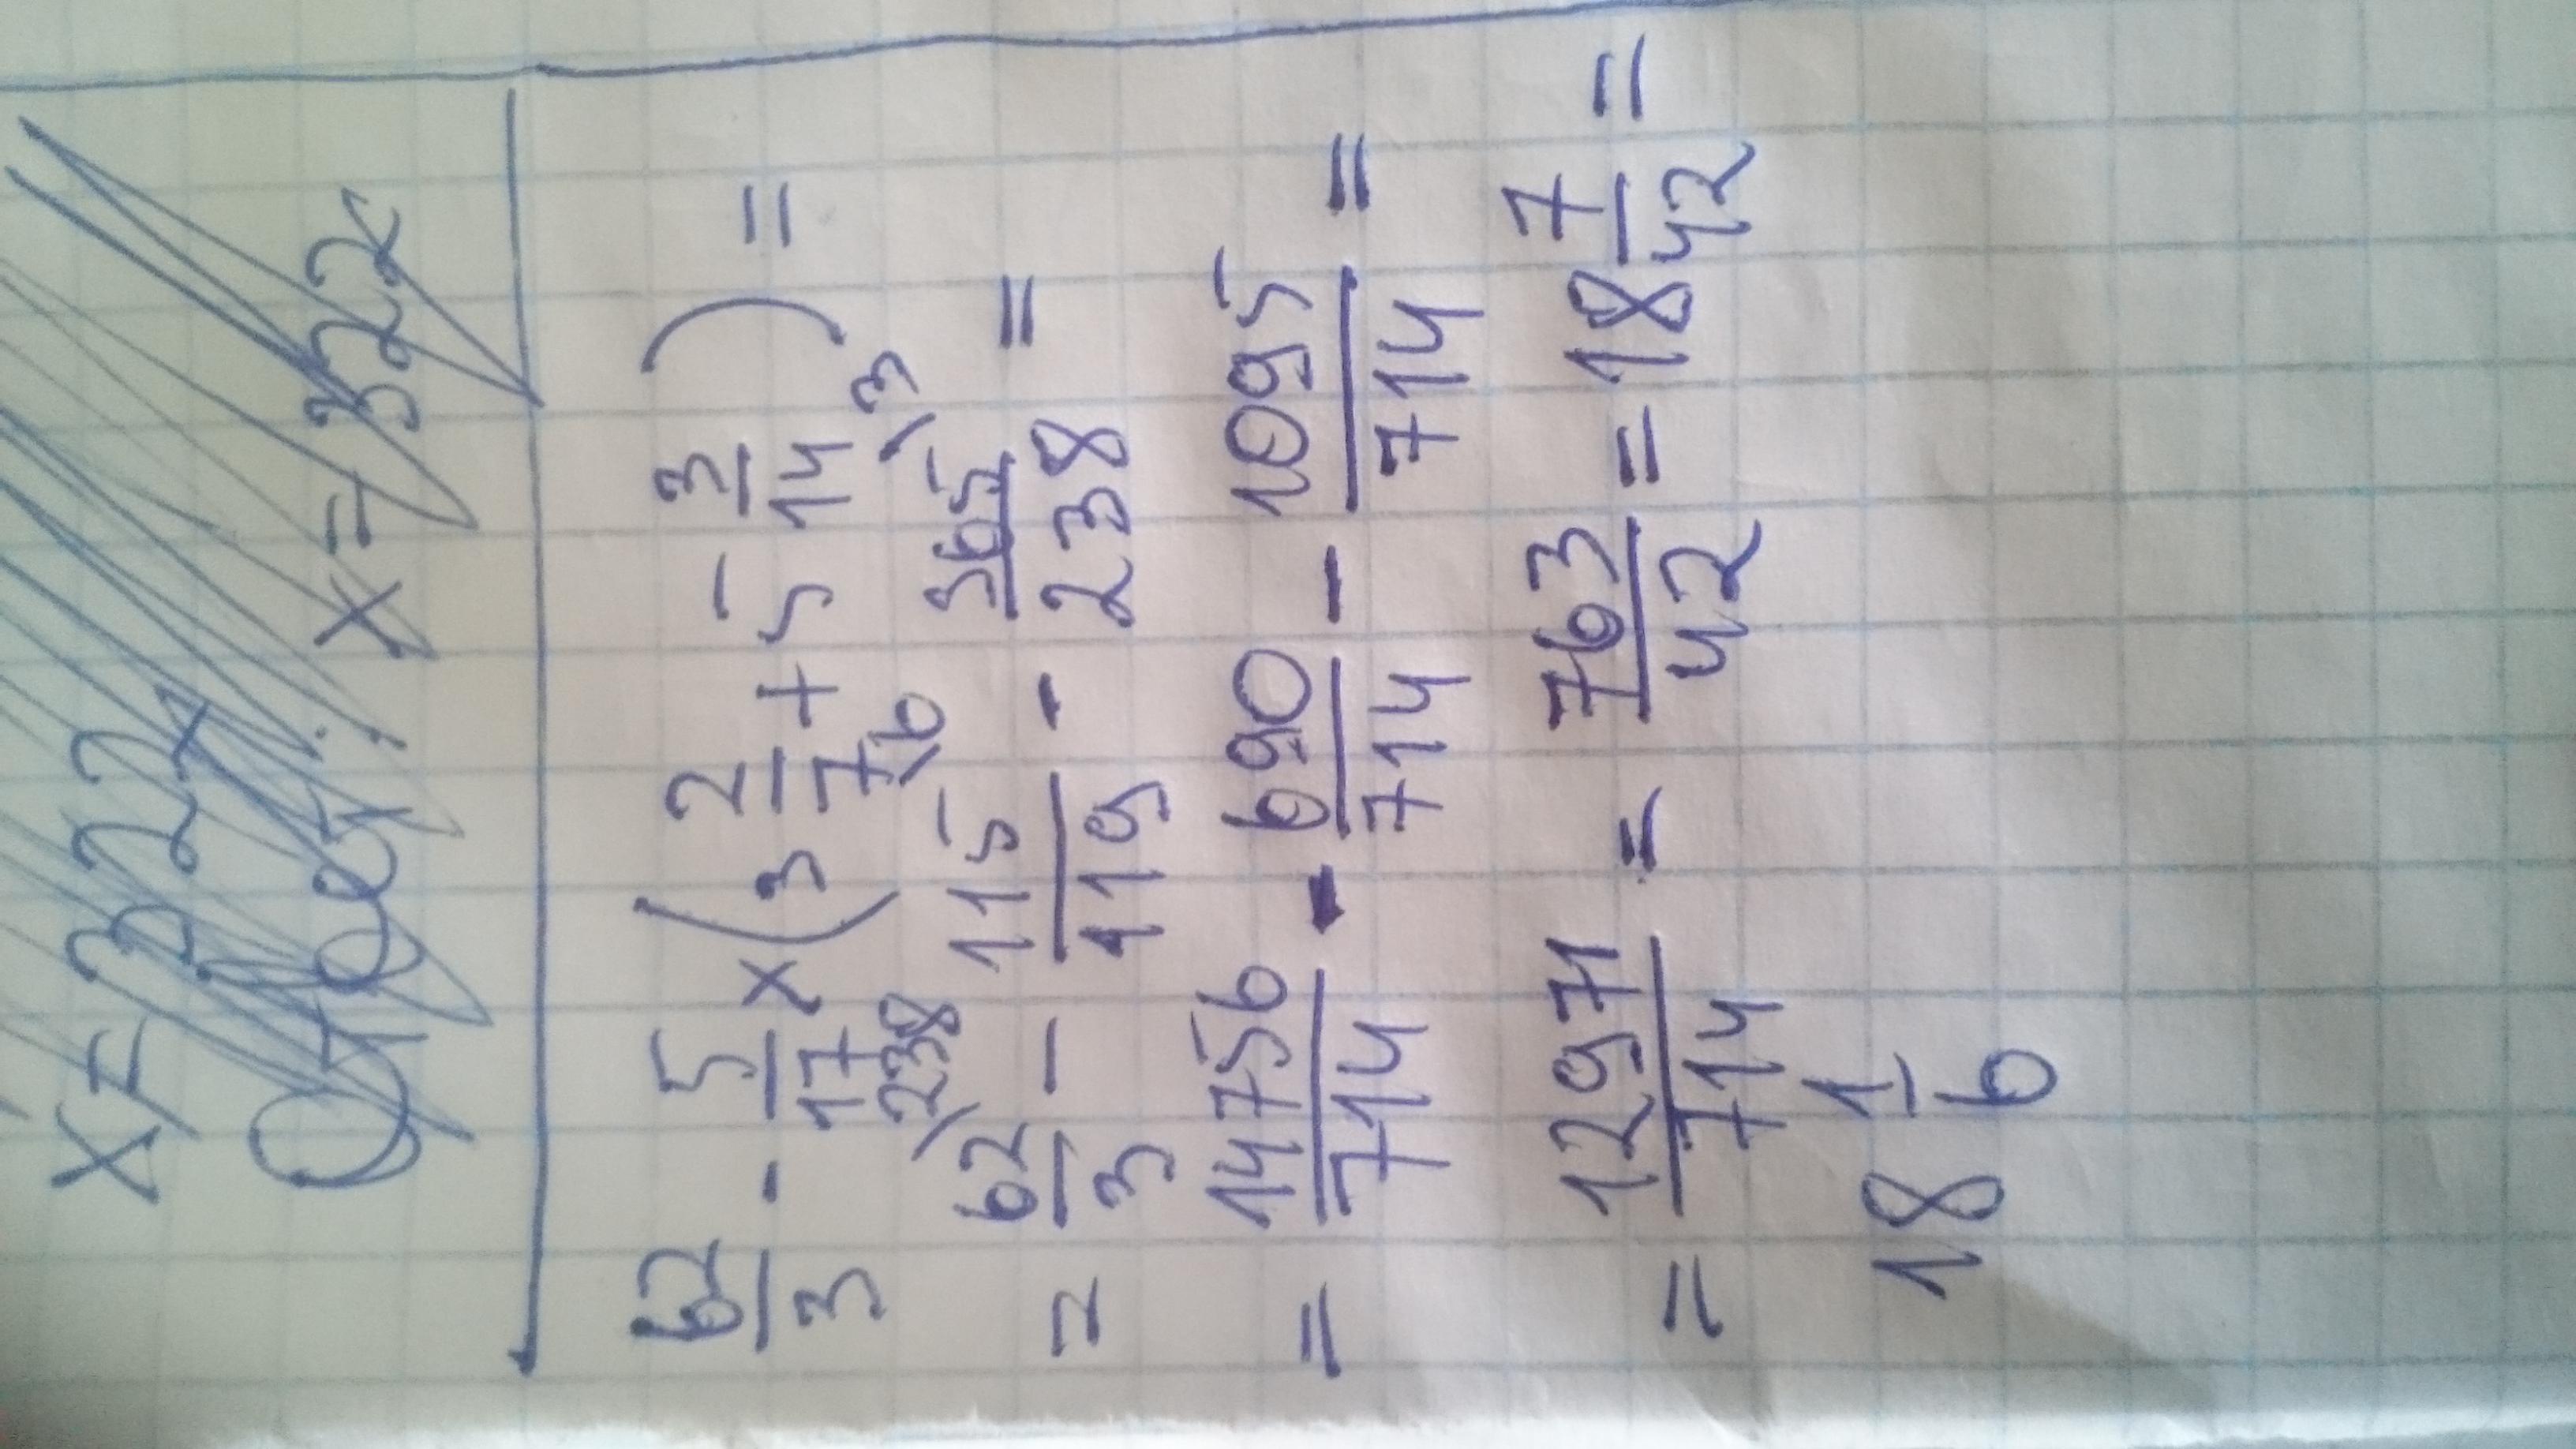 x = 322
Ответ: x = 322
62/3 - 5/17 x (3 2/7 + 5 3/14) =
= 62/3 \238 - 115/119 \6 - 365/238 \3 =
= 14756/714 - 690/714 - 1095/714 =
= 12971/714 = 763/42 = 18 7/42 =
18 1/6